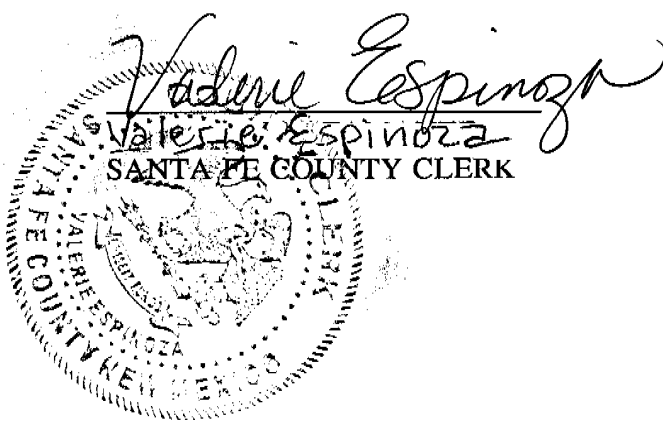 Valerie Espinoza
Valerie Espinoza
SANTA FE COUNTY CLERK
SANTA FE COUNTY NEW MEXICO
CLERK
VALERIE ESPINOZA